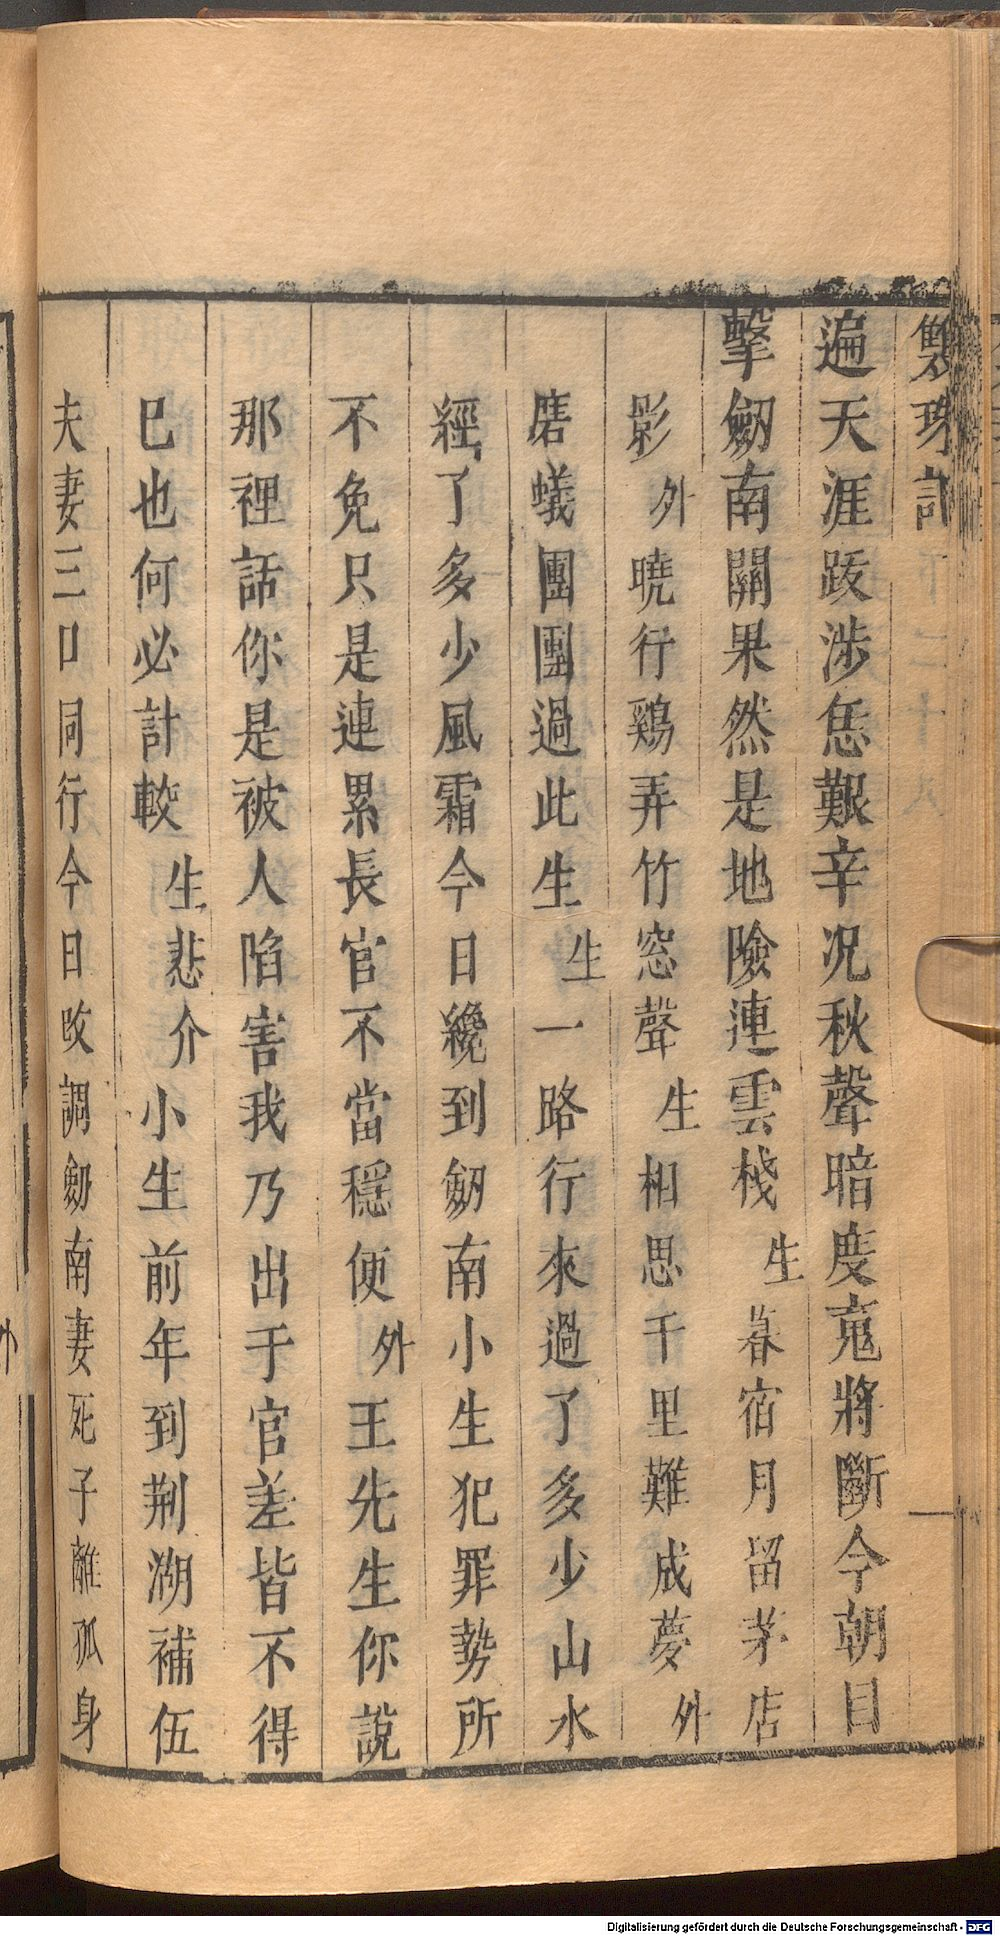 雙珠記
遍天涯跋涉恁艱辛况秋聲暗度䰟將斷今朝目
擊劒南關果然是地險連雲棧生暮宿月留茅店
影外曉行鷄弄竹窓聲生相思千里難成夢外
磨蟻團團過此生生一路行來過了多少山水
經了多少風霜今日纔到劒南小生犯罪勢所
不免只是連累長官不當穩便外王先生你說
那裡話你是被人陷害我乃出于官差皆不得
巳也何必計較生悲介小生前年到荆湖補伍
夫妻三口同行今日改調劒南妻死子離孤身
外
Digitalisierung gefördert durch die Deutsche Forschungsgemeinschaft - DFG